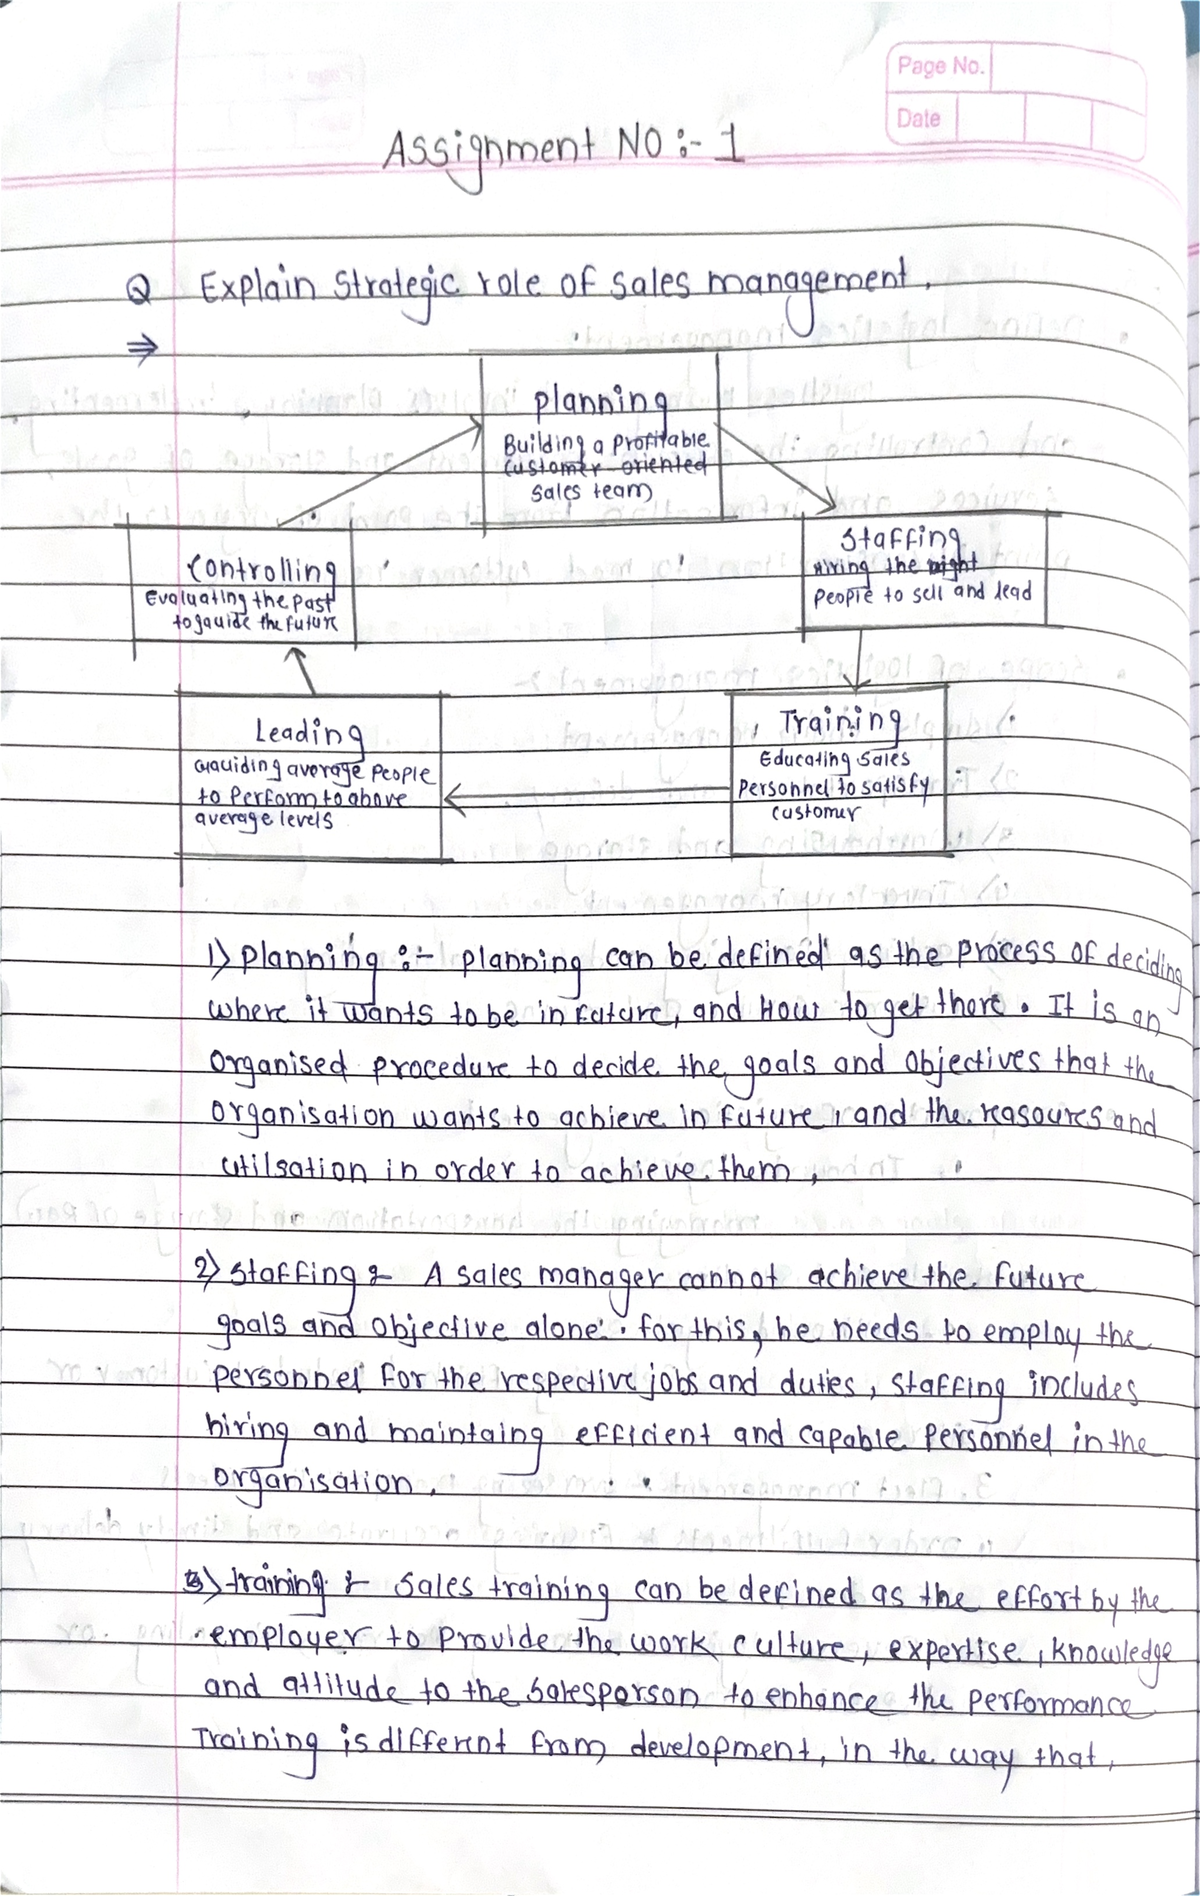 Page No.
Date
Assignment NO :- 1
Q Explain Strategic role of sales management.
⇒
Planning
Building a Profitable
Customer oriented
Sales team
Controlling
Evaluating the Past
to gauide the future
Staffing
Hiring the right
People to sell and lead
Leading
Guauiding average People
to Perform to above
average levels
Training
Educating Sales
Personnel to satisfy
customer
1) Planning :- planning can be defined as the Process of deciding
where it wants to be in future, and How to get there. It is an
Organised procedure to decide the goals and Objectives that the
organisation wants to achieve in future, and the reasoures and
utilsation in order to achieve them,
2) Staffing :- A sales manager cannot achieve the future
goals and Objective alone. for this, he needs to employ the
personnel for the respective jobs and duties, Staffing includes
hiring and maintaing efficient and capable Personnel in the
organisation.
3) training :- Sales training can be defined as the effort by the
employer to provide the work culture, expertise, knowledge
and attitude to the salesperson to enhance the Performance
Training is different from development, in the way that,